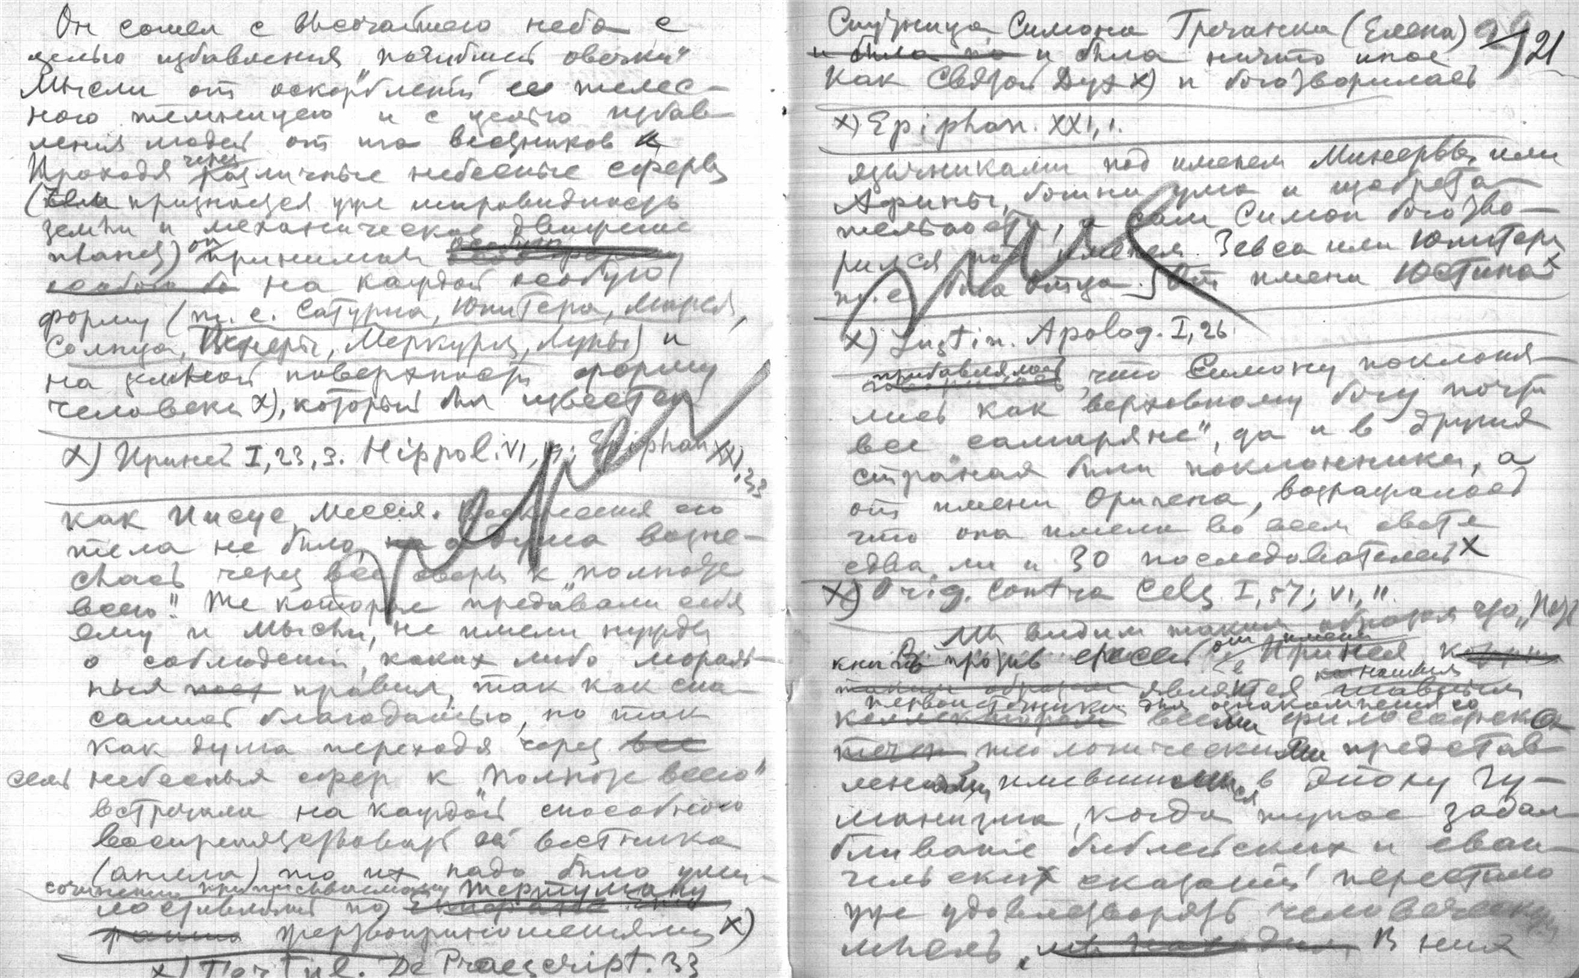 Он сошел с высочайшего неба с
целью избавления "погибшей овечки"
Мысли от оскорблений ее телес-
ного темницею и с целью избав-
ления людей от
Проходя через различные небесные сферы
признается уже шаровидность
земли и механическое движение
планет) он принимал
на каждой особую
форму (т. е. Сатурна, Юпитера, Марса,
Солнца, Венеры, Меркурия, Луны) и
на земной поверхности форму
человека х), который был известен
х) Ириней I, 23, 3. Hippol. VI, Epiphan XXI,
как Иисус Мессия. Воскресения его
тела не было, а душа возне-
слась через все сферы к "полноте
всего". Те которые предавали себя
ему и Мысли, не имели нужды
о соблюдении каких либо мораль-
ныя правил, так как спа-
сались благодатью, но так
как душа переходя через
семь небесныя сфер к "полноте всего"
встречала на каждой способного
воспрепятствовать ей вестника
(ангела) то их надо было уми-
сочинению приписываемому Тертулиану
лостивлять по
жертвоприношениями х)
х) Tertul. De Praescript. 33
Спутница Симона Гречанка (Елена) 21
и была ничто иное
как Святой Дух х) и боготворилась
х) Epiphan. XXI, 1.
язычниками под именем Минервы или
Афины, богини ума и изобрета-
тельности, а сам Симон богово-
рился под именем Зевса или Юпитера
т. е. бога отца. От имени Юстина х
х) Justin. Apolog. I, 26.
прибавлялось, что Симону поклоня-
лись как "верховному богу почти
все самаряне", да и в другия
странах были поклонники, а
от имени Оригена, возражалось
что она имела во всем свете
едва ли и 30 последователей х
х) Orig. Contra Cels. I, 57; VI, 11.
Мы видим таким образом что
В книге против ересей от имени Иринея
является
первоисточником для ознакомления со
всеми философско
теологическими представ
лениями, имевшимися в эпоху гу-
манизма, когда тупое задал
бливание библейских и еван-
гельских сказаний перестало
уже удовлетворять человеческую
мысль. В них